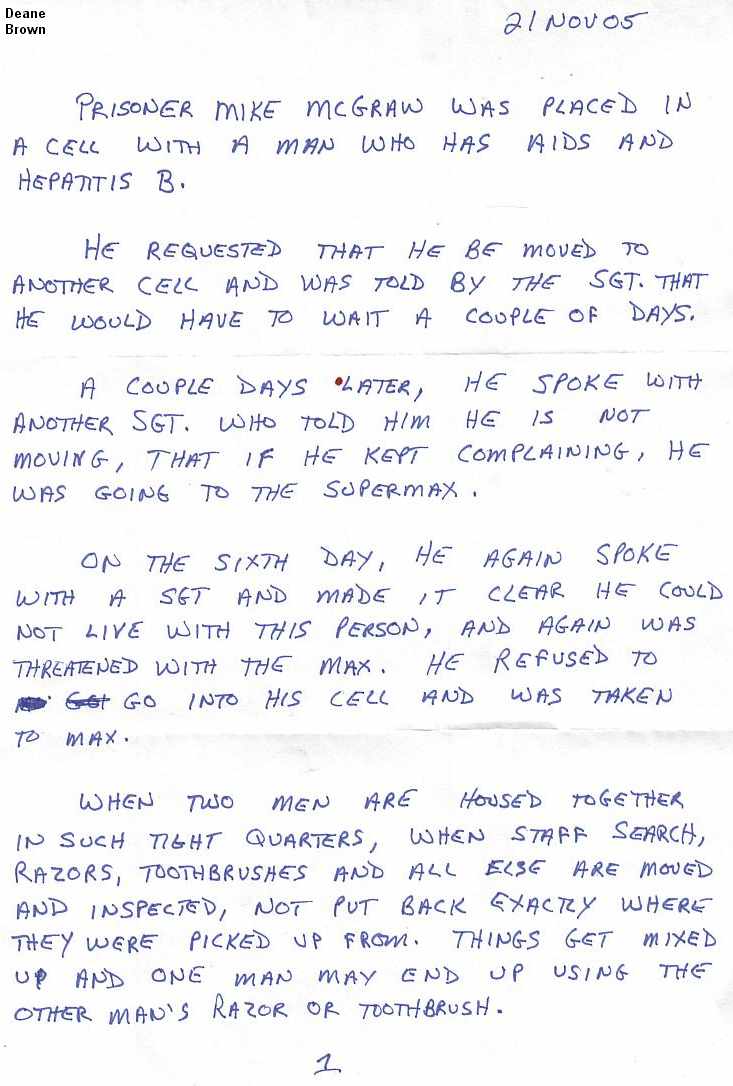 Deane
Brown
21 NOV 05
PRISONER MIKE MCGRAW WAS PLACED IN
A CELL WITH A MAN WHO HAS AIDS AND
HEPATITIS B.
HE REQUESTED THAT HE BE MOVED TO
ANOTHER CELL AND WAS TOLD BY THE SGT. THAT
HE WOULD HAVE TO WAIT A COUPLE OF DAYS.
A COUPLE DAYS LATER, HE SPOKE WITH
ANOTHER SGT. WHO TOLD HIM HE IS NOT
MOVING, THAT IF HE KEPT COMPLAINING, HE
WAS GOING TO THE SUPERMAX.
ON THE SIXTH DAY, HE AGAIN SPOKE
WITH A SGT AND MADE IT CLEAR HE COULD
NOT LIVE WITH THIS PERSON, AND AGAIN WAS
THREATENED WITH THE MAX. HE REFUSED TO
GO INTO HIS CELL AND WAS TAKEN
TO MAX.
WHEN TWO MEN ARE HOUSED TOGETHER
IN SUCH TIGHT QUARTERS, WHEN STAFF SEARCH,
RAZORS, TOOTHBRUSHES AND ALL ELSE ARE MOVED
AND INSPECTED, NOT PUT BACK EXACTLY WHERE
THEY WERE PICKED UP FROM. THINGS GET MIXED
UP AND ONE MAN MAY END UP USING THE
OTHER MAN'S RAZOR OR TOOTHBRUSH.
1